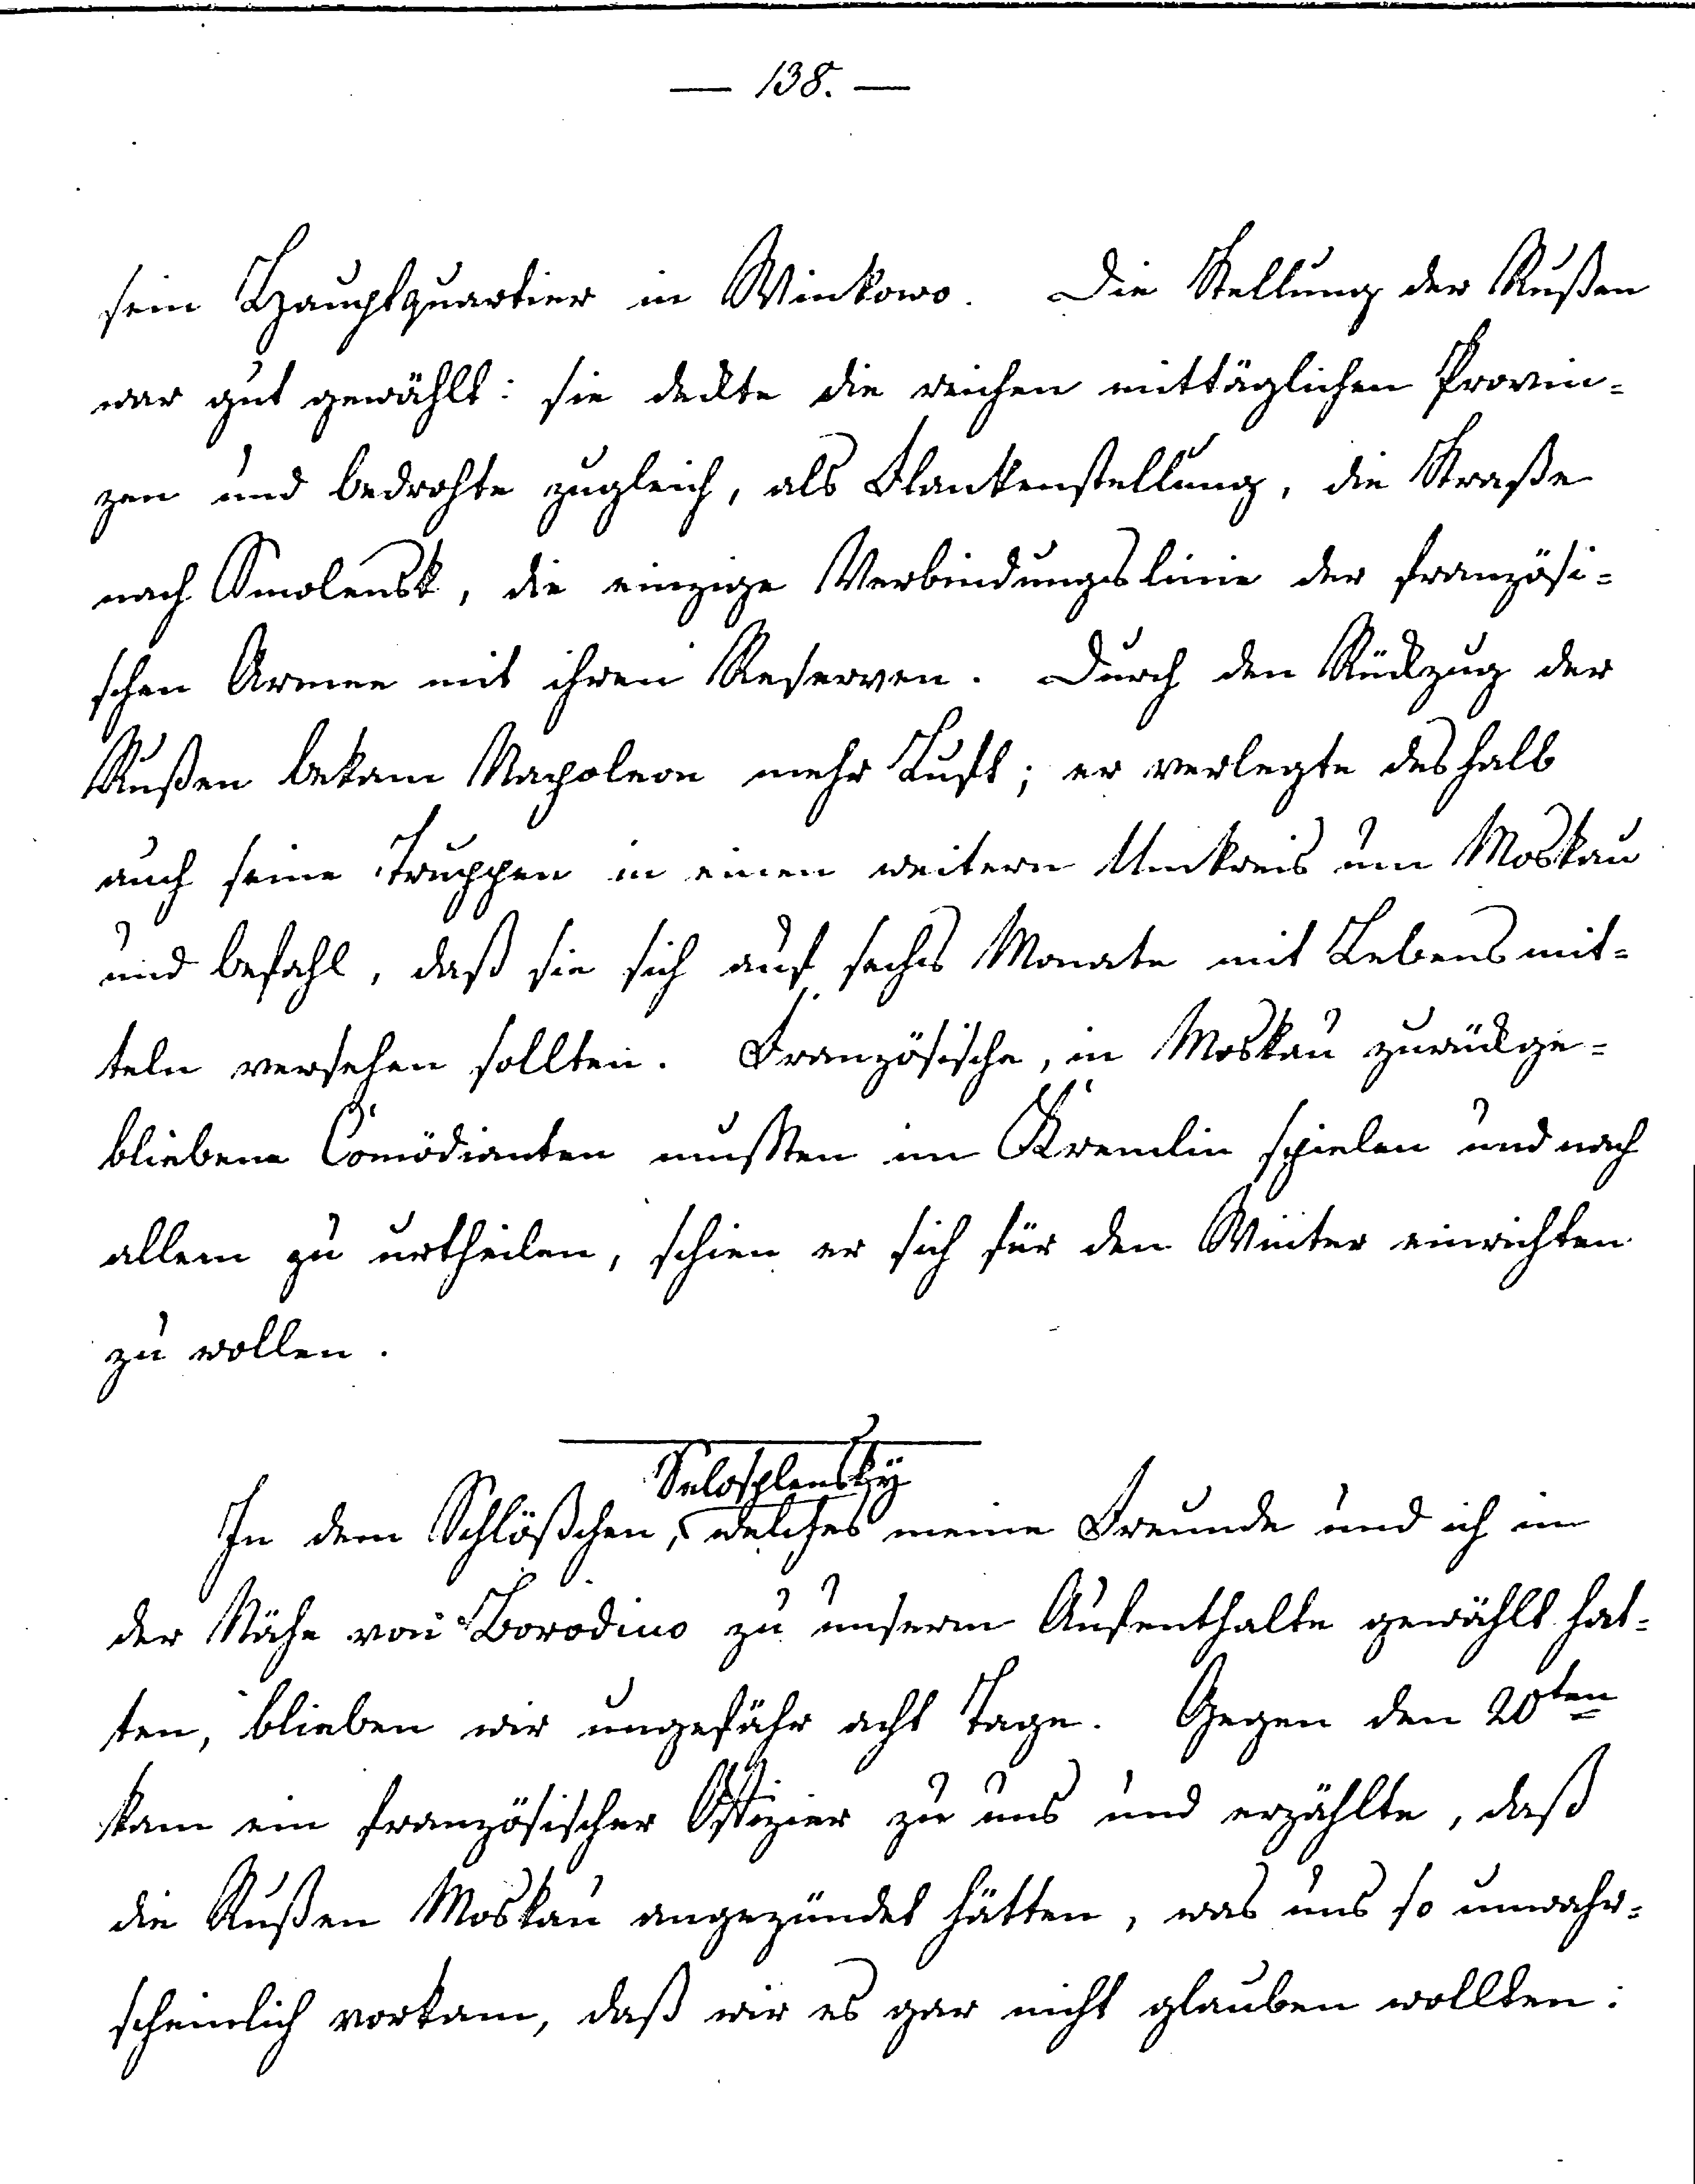 — 138. —
sein Hauptquartier in Winkowo. Die Stellung der Rußen
war gut gewählt: sie deckte die reichen mittäglichen Provin-
zen und bedrohte zugleich, als Flankenstellung, die Straße
nach Smolensk, die einzige Verbindungslinie der französi-
schen Armee mit ihren Reserven. Durch den Rückzug der
Rußen bekam Napoleon mehr Luft; er verlegte deshalb
auch seine Truppen in einen weitern Umkreis um Moskau
und befahl, daß sie sich auf sechs Monate mit Lebensmit-
teln versehen sollten. Französische, in Moskau zurückge-
bliebene Comödianten mußten im Kremlin spielen und nach
allem zu urtheilen, schien er sich für den Winter einrichten
zu wollen.
In dem Schlößchen, welches meine Freunde und ich in
der Nähe von Borodino zu unserm Aufenthalte gewählt hat-
ten, blieben wir ungefähr acht Tage. Gegen den 20ten
kam ein französischer Offizier zu uns und erzählte, daß
die Rußen Moskau angezündet hätten, was uns so unwahr-
scheinlich vorkam, daß wir es gar nicht glauben wollten: